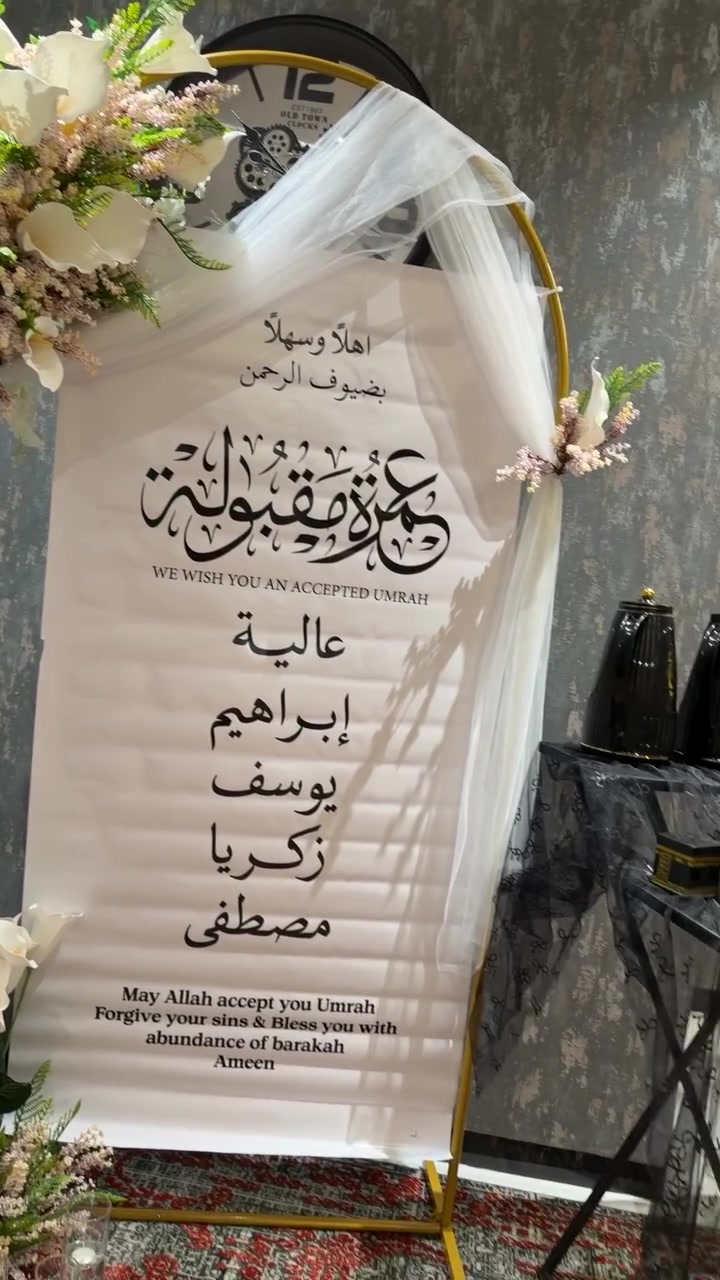 12
EST 1863
OLD TOWN
CLOCKS
اهلًا وسهلًا
بضيوف الرحمن
عُمْرَةٌ مَقْبُولَة
WE WISH YOU AN ACCEPTED UMRAH
عالية
إبراهيم
يوسف
زكريا
مصطفى
May Allah accept you Umrah
Forgive your sins & Bless you with
abundance of barakah
Ameen